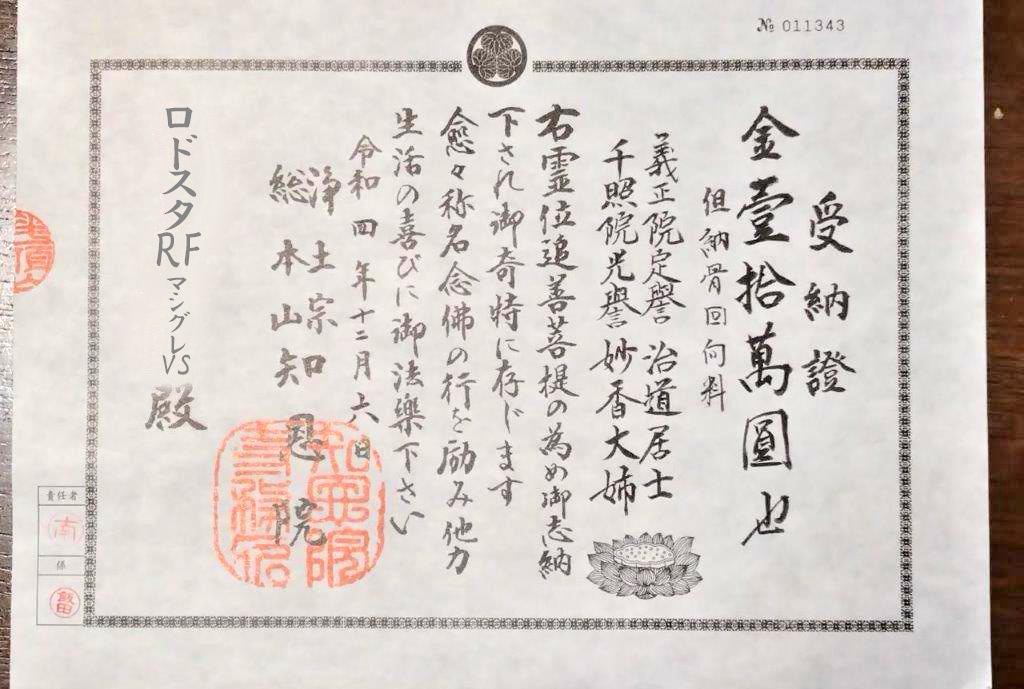 № 011343
受納證
金壹拾萬圓也
但納骨回向料
義正院定譽治道居士
千照院光譽妙香大姉
右霊位追善菩提の為め御志納
下され御奇特に存じます
愈々称名念佛の行を励み他力
生活の喜びに御法樂下さい
令和四年十二月六日
浄土宗
総本山知恩院
ロドスタRFマシグレVS殿
責任者
南
係
飯田